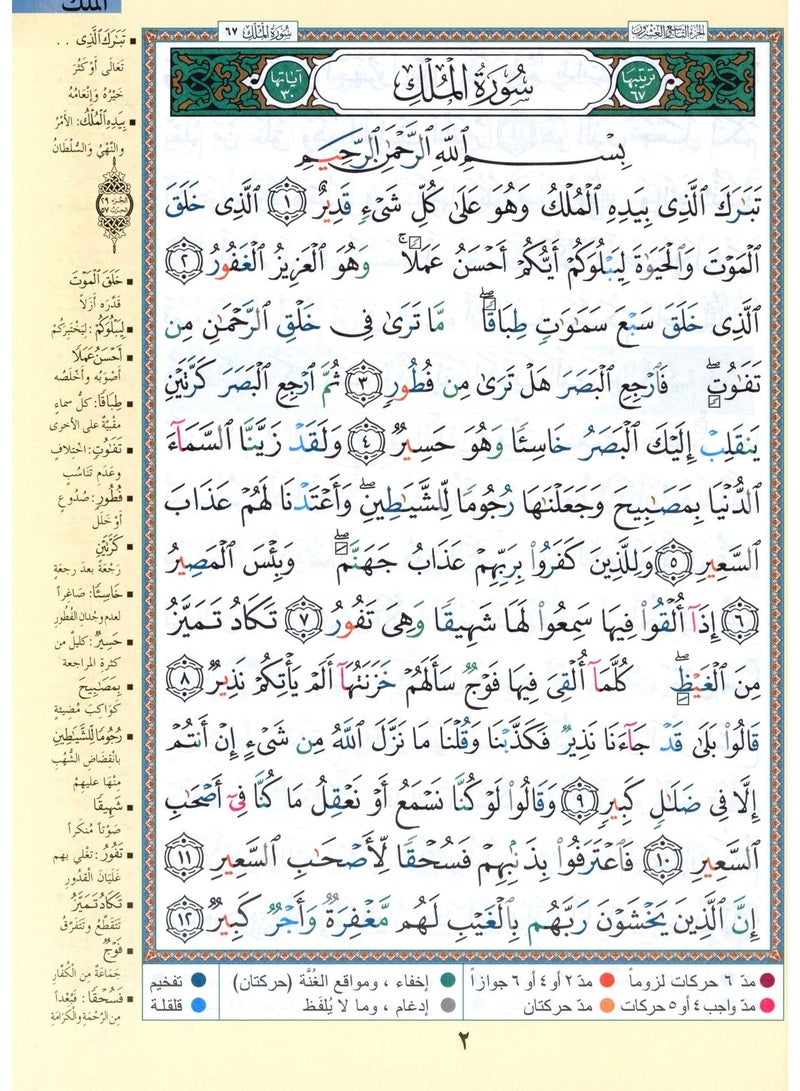 الملك
سُورَةُ المُلْك ٦٧
الجزء التاسع والعشرون
ترتيبها ٦٧
سُورَةُ المُلْكِ
آياتها ٣٠
بِسْمِ ٱللَّهِ ٱلرَّحْمَٰنِ ٱلرَّحِيمِ
تَبَٰرَكَ ٱلَّذِى بِيَدِهِ ٱلْمُلْكُ وَهُوَ عَلَىٰ كُلِّ شَىْءٍ قَدِيرٌ ١ ٱلَّذِى خَلَقَ
ٱلْمَوْتَ وَٱلْحَيَوٰةَ لِيَبْلُوَكُمْ أَيُّكُمْ أَحْسَنُ عَمَلًا ۚ وَهُوَ ٱلْعَزِيزُ ٱلْغَفُورُ ٢
ٱلَّذِى خَلَقَ سَبْعَ سَمَٰوَٰتٍ طِبَاقًا ۖ مَّا تَرَىٰ فِى خَلْقِ ٱلرَّحْمَٰنِ مِن
تَفَٰوُتٍ ۖ فَٱرْجِعِ ٱلْبَصَرَ هَلْ تَرَىٰ مِن فُطُورٍ ٣ ثُمَّ ٱرْجِعِ ٱلْبَصَرَ كَرَّتَيْنِ
يَنقَلِبْ إِلَيْكَ ٱلْبَصَرُ خَاسِئًا وَهُوَ حَسِيرٌ ٤ وَلَقَدْ زَيَّنَّا ٱلسَّمَآءَ
ٱلدُّنْيَا بِمَصَٰبِيحَ وَجَعَلْنَٰهَا رُجُومًا لِّلشَّيَٰطِينِ ۖ وَأَعْتَدْنَا لَهُمْ عَذَابَ
ٱلسَّعِيرِ ٥ وَلِلَّذِينَ كَفَرُوا۟ بِرَبِّهِمْ عَذَابُ جَهَنَّمَ ۖ وَبِئْسَ ٱلْمَصِيرُ
٦ إِذَآ أُلْقُوا۟ فِيهَا سَمِعُوا۟ لَهَا شَهِيقًا وَهِىَ تَفُورُ ٧ تَكَادُ تَمَيَّزُ
مِنَ ٱلْغَيْظِ ۖ كُلَّمَآ أُلْقِىَ فِيهَا فَوْجٌ سَأَلَهُمْ خَزَنَتُهَآ أَلَمْ يَأْتِكُمْ نَذِيرٌ ٨
قَالُوا۟ بَلَىٰ قَدْ جَآءَنَا نَذِيرٌ فَكَذَّبْنَا وَقُلْنَا مَا نَزَّلَ ٱللَّهُ مِن شَىْءٍ إِنْ أَنتُمْ
إِلَّا فِى ضَلَٰلٍ كَبِيرٍ ٩ وَقَالُوا۟ لَوْ كُنَّا نَسْمَعُ أَوْ نَعْقِلُ مَا كُنَّا فِىٓ أَصْحَٰبِ
ٱلسَّعِيرِ ١٠ فَٱعْتَرَفُوا۟ بِذَنۢبِهِمْ فَسُحْقًا لِّأَصْحَٰبِ ٱلسَّعِيرِ ١١
إِنَّ ٱلَّذِينَ يَخْشَوْنَ رَبَّهُم بِٱلْغَيْبِ لَهُم مَّغْفِرَةٌ وَأَجْرٌ كَبِيرٌ ١٢
تَبَٰرَكَ ٱلَّذِى . .
تَعَالَى أَوْ كَثُرَ
خَيْرُهُ وَإِنْعَامُهُ
بِيَدِهِ ٱلْمُلْكُ: الأَمْرُ
والنَّهْيُ وَالسُّلْطَانُ
الجزء ٢٩
الحزب ٥٧
خَلَقَ ٱلْمَوْتَ
قَدَّرَه أَزَلاً
لِيَبْلُوَكُمْ: لِيَخْتَبِرَكُمْ
أَحْسَنُ عَمَلًا
أَصْوَبُه وأخْلَصُه
طِبَاقًا: كلُّ سماءٍ
مقْبِيَّة على الأخرى
تَفَٰوُتٍ: اختلافٍ
وعَدَم تَنَاسُبٍ
فُطُورٍ: صُدُوعٍ
أوْ خَلَلٍ
كَرَّتَيْنِ
رَجْعَةً بعدَ رجعَةٍ
خَاسِئًا: صَاغِراً
لعدم وجْدانِ الفُطُورِ
حَسِيرٌ: كليلٌ من
كثرة المراجعة
بِمَصَٰبِيحَ
كَوَاكِبَ مُضيئةٍ
رُجُومًا لِّلشَّيَٰطِينِ
بانْقِضَاضِ الشُّهُبِ
مِنْهَا عليهِمْ
شَهِيقًا
صَوْتاً مُنكَراً
تَفُورُ: تَغْلي بهم
غَلَيَانَ القُدُورِ
تَكَادُ تَمَيَّزُ
تَتَقَطَّعُ وتَتَفَرَّقُ
فَوْجٌ
جَمَاعَةٌ مِنَ الكُفَّارِ
فَسُحْقًا: فَبُعْداً
مِنَ الرَّحْمَةِ والْكَرَامَةِ
مدّ ٦ حركات لزوماً
مدّ ٢ أو ٤ أو ٦ جوازاً
إخفاء ، ومواقع الغُنَّة (حركتان)
تفخيم
مدّ واجب ٤ أو ٥ حركات
مدّ حركتان
إدغام ، وما لا يُلفَظ
قلقلة
٢